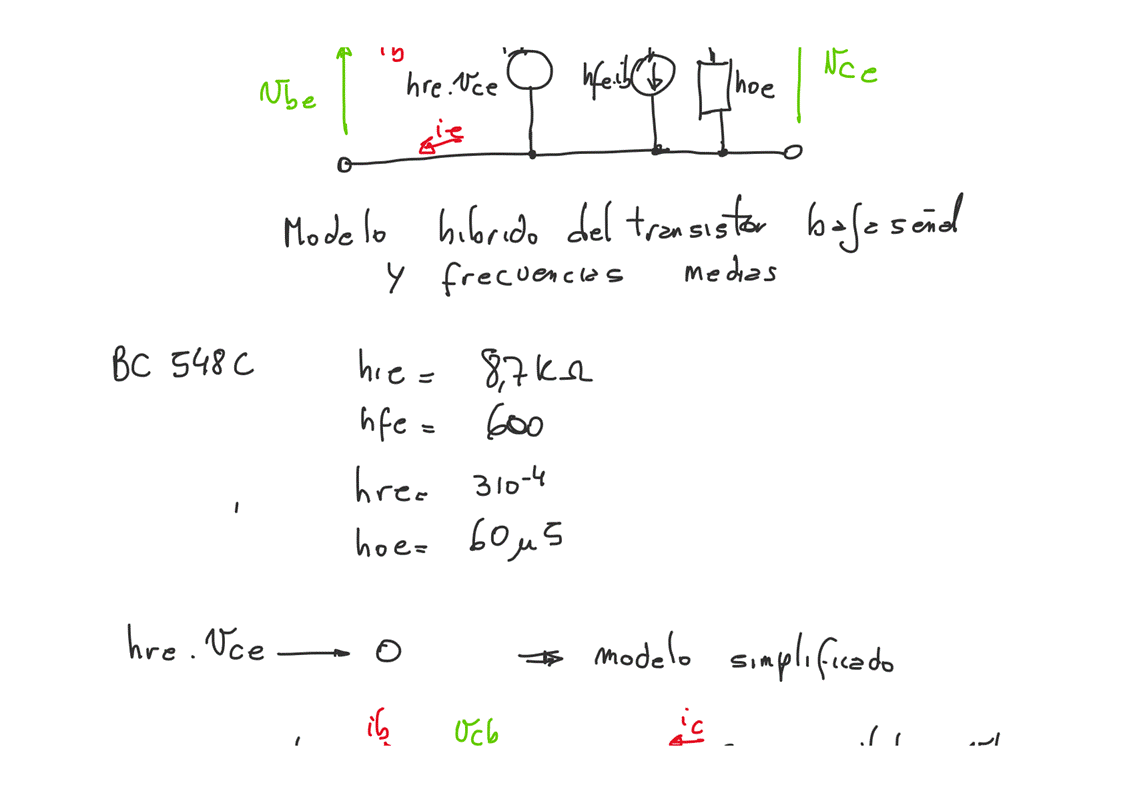 ib
Vbe hre.Vce hfe.ib hoe Vce
ie
Modelo hibrido del transistor baja señal
y frecuencias medias
BC 548C hie = 8,7 KΩ
hfe = 600
hre = 3 10-4
hoe = 60 μS
hre . Vce → 0 ⇒ modelo simplificado
ib Vcb ic